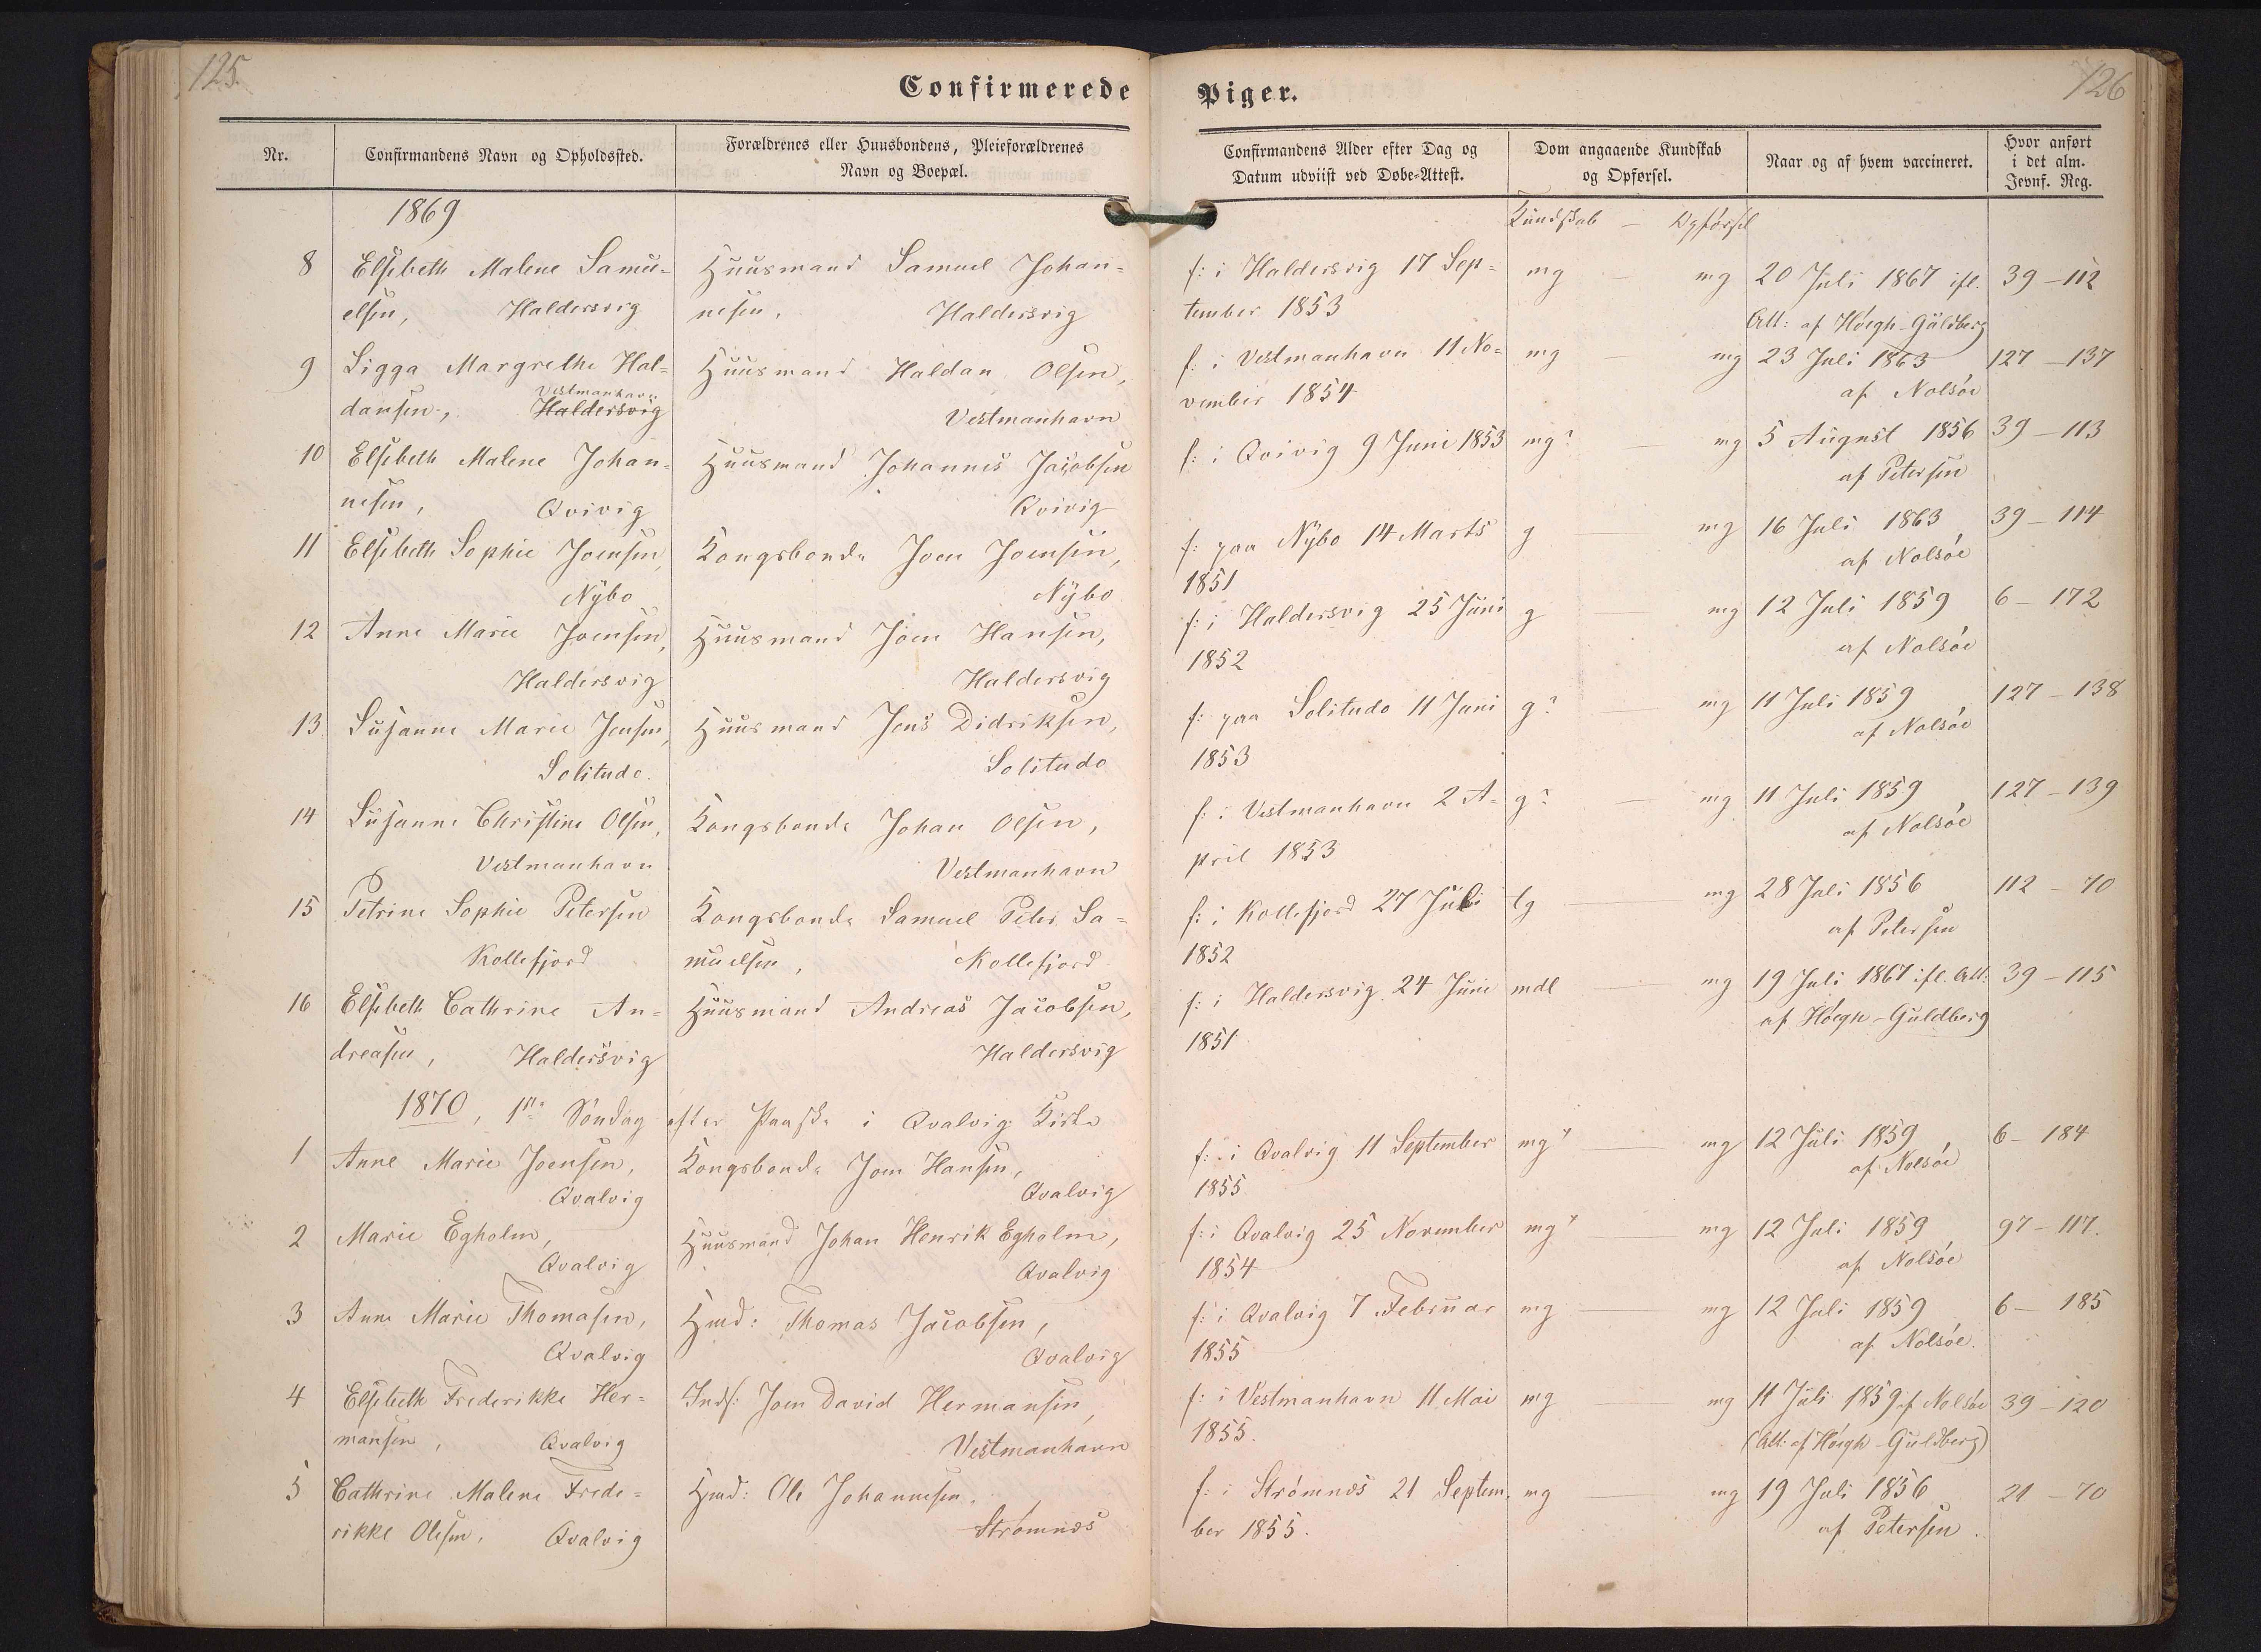 125.
126
Confirmerede Piger.
Nr.
Confirmandens Navn og Opholdssted.
Forældrenes eller Huusbondens, Pleieforældrenes
Navn og Boepæl.
Confirmandens Alder efter Dag og
Datum udviist ved Døbe-Attest.
Dom angaaende Kundskab
og Opførsel.
Naar og af hvem vaccineret.
Hvor anført
i det alm.
Jevnf. Reg.
1869
Kundskab — Opførsel
8 Elsebeth Malene Samu= Huusmand Samuel Johan= f: i Haldersvig 17 Sep= mg — mg 20 Juli 1867 ifl. 39 – 112
elsen, Haldersvig nesen, Haldersvig tember 1853 Att: af Høegh-Guldberg
9 Sigga Margrethe Hal= Huusmand Haldan Olsen, f: i Vestmanhavn 11 No= mg — mg 23 Juli 1863 127 – 137
Vestmanhavn
dansen, Haldersvig Vestmanhavn vember 1854 af Nolsøe
10 Elsebeth Malene Johan= Huusmand Johannes Jacobsen f: i Qvivig 9 Juni 1853 mg? — mg 5 August 1856 39 – 113
nesen, Qvivig Qvivig af Petersen
11 Elsebeth Sophie Joensen, Kongsbonde Joen Joensen, f: paa Nybo 14 Marts g — mg 16 Juli 1863 39 – 114
Nybo Nybo 1851 af Nolsøe
12 Anne Marie Joensen, Huusmand Joen Hansen, f: i Haldersvig 25 Juni g — mg 12 Juli 1859 6 – 172
Haldersvig Haldersvig 1852 af Nolsøe
13. Susanne Marie Jensen, Huusmand Jens Didriksen, f: paa Solitude 11 Juni g? — mg 11 Juli 1859 127 – 138
Solitude. Solitude 1853 af Nolsøe
14 Susanne Christine Olsen, Kongsbonde Johan Olsen, f: i Vestmanhavn 2 A= g? — mg 11 Juli 1859 127 – 139
Vestmanhavn Vestmanhavn pril 1853 af Nolsøe
15 Petrine Sophie Petersen Kongsbonde Samuel Peter Sa= f: i Kollefjord 27 Juli lg — mg 28 Juli 1856 112 – 70
Kollefjord muelsen, Kollefjord 1852 af Petersen
16 Elsebeth Cathrine An= Huusmand Andreas Jacobsen, f: i Haldersvig 24 Juni mdl — mg 19 Juli 1867 ifl. Att: 39 – 115
dreasen, Haldersvig Haldersvig 1851 af Høegh-Guldberg
1870, 1ste Søndag efter Paaske i Qvalvig Kirke
1 Anne Marie Joensen, Kongsbonde Joen Hansen, f: i Qvalvig 11 September mg+ — mg 12 Juli 1859 6 – 184
Qvalvig Qvalvig 1855 af Nolsøe
2 Marie Egholm, Huusmand Johan Henrik Egholm, f: i Qvalvig 25 November mg+ — mg 12 Juli 1859 97 – 117.
Qvalvig Qvalvig 1854 af Nolsøe
3 Anne Marie Thomasen, Hmd: Thomas Jacobsen, f: i Qvalvig 7 Februar mg — mg 12 Juli 1859 6 – 185
Qvalvig Qvalvig 1855 af Nolsøe.
4 Elsebeth Frederikke Her= Inds: Joen David Hermansen, f: i Vestmanhavn 11 Mai mg — mg 11 Juli 1859 af Nolsøe 39 – 120
mansen, Qvalvig Vestmanhavn 1855. (Att: af Høegh-Guldberg)
5 Cathrine Malene Frede= Hmd: Ole Johannesen, f: i Strømnæs 21 Septem. mg — mg 19 Juli 1856 21 – 70
rikke Olesen, Qvalvig Strømnæs ber 1855. af Petersen.